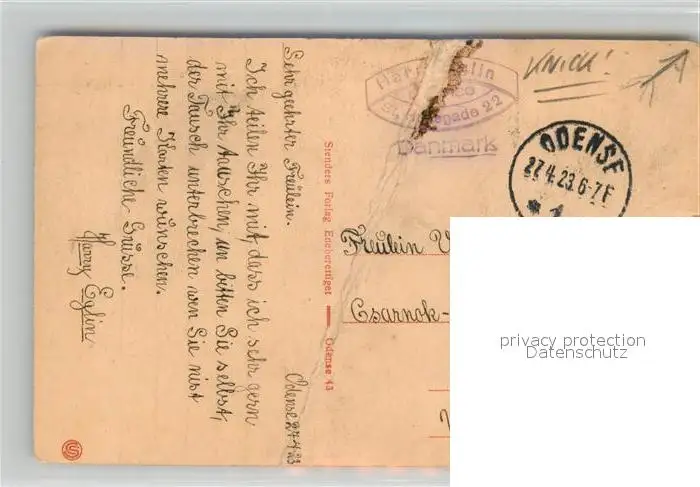 Odense 27.4.23
Sehr geehrter Freülein.
Ich teilen Ihr mit, dass ich sehr gern
mit Ihr tauschen, un bitten Sie selbst,
der Tausch unterbrechen wen Sie nist
mehrere Karten wünschen.
Freündliche Grüsse.
Harry Eglin
Stenders Forlag Eneberettiget — Odense 43
Harry Eglin
Danmark
KNICK!
ODENSE
27.4.23.6-7F
* 1
Freülein V
Csarnok-
privacy protection
Datenschutz